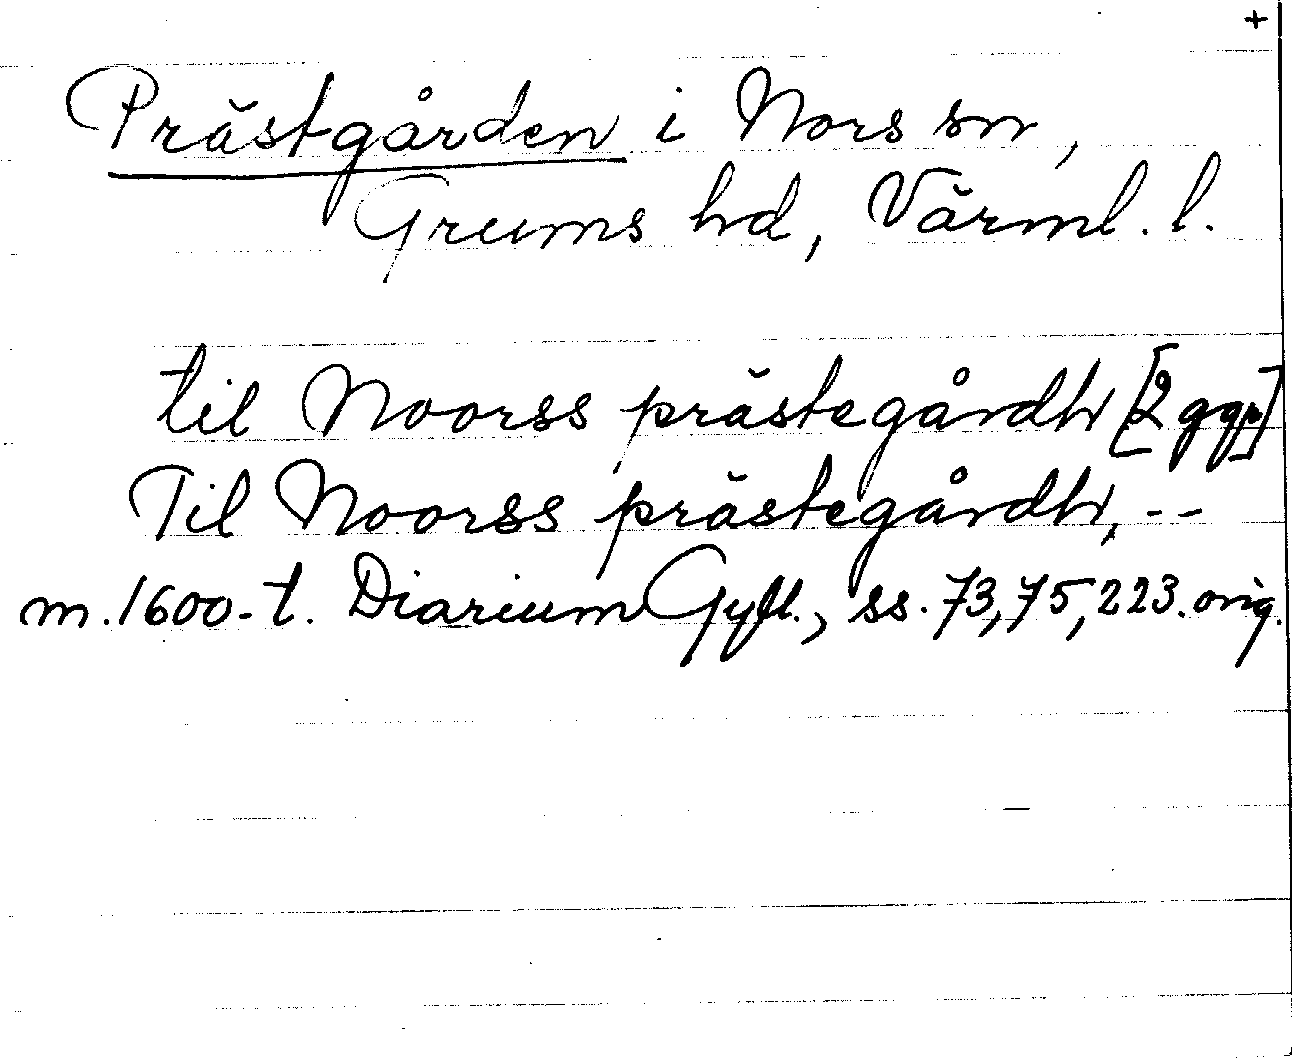 +
Prästgården i Nors sn,
Grums hd, Värml. l.
til Noorss prästegårdh [2 ggr]
Til Noorss prästegårdh, --
m. 1600-t. Diarium Gyll., ss. 73, 75, 223. orig.